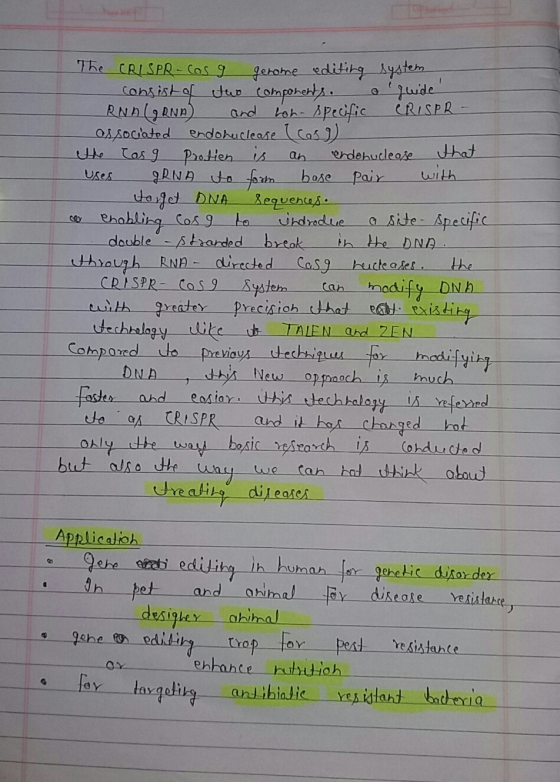 The CRISPR-Cas 9 genome editing system
consist of two components. a 'guide'
RNA (gRNA) and non-specific CRISPR-
associated endonuclease (Cas 9)
the Cas 9 protien is an endonuclease that
uses gRNA to form base pair with
target DNA sequences.
enabling Cas 9 to undrodue a site-specific
double-stranded break in the DNA.
through RNA-directed Cas9 nucleases. the
CRISPR-Cas 9 System can modify DNA
with greater precision that existing
technology like TALEN and ZEN
Compared to previous techniques for modifying
DNA, this New approach is much
faster and easiar. this technology is referred
to as CRISPR and it has changed not
only the way basic research is conducted
but also the way we can not think about
treating diseases
Application
• gene editing in human for genetic disorder
• In pet and animal for disease resistance,
designer animal
• gene editing crop for pest resistance
or enhance nutrition
• for targeting antibiatic resistant bacteria